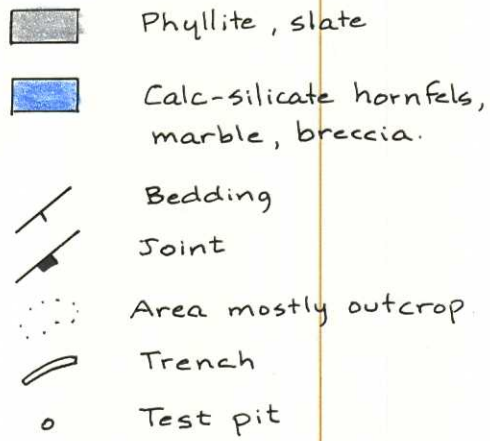 Phyllite, slate
Calc-silicate hornfels,
marble, breccia.
Bedding
Joint
Area mostly outcrop
Trench
Test pit